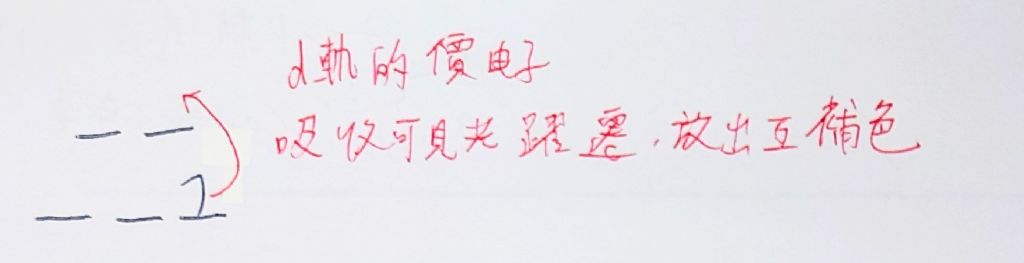 d軌的價电子
吸收可見光躍遷.放出互補色